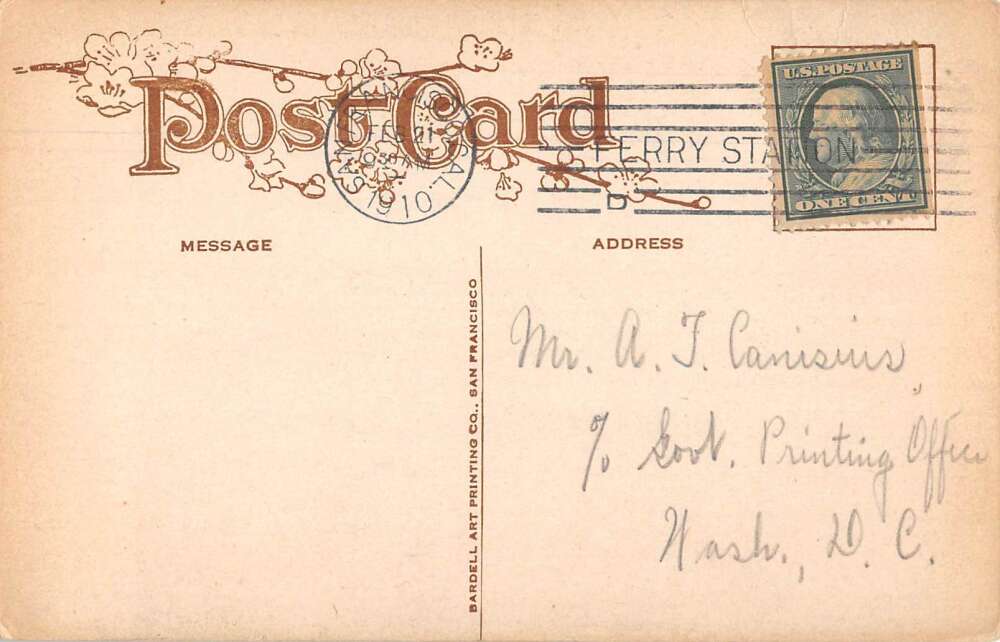 Post Card
SAN FRANCISCO, CAL.
FEB 21
930 AM
1910
FERRY STATION
D
U.S. POSTAGE
ONE CENT
MESSAGE
ADDRESS
BARDELL ART PRINTING CO., SAN FRANCISCO
Mr. A. T. Canisius,
% Govt. Printing Office
Wash., D. C.